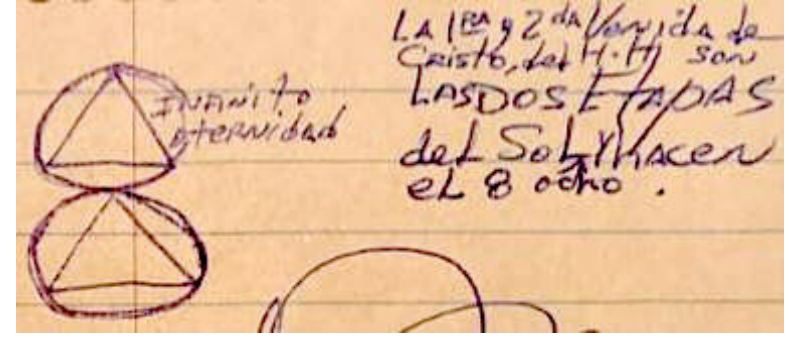 INFINITO
ETERNIDAD
LA 1RA y 2da Venida de
Cristo, del H.H son
LAS DOS ETAPAS
del SoL Y HACEN
eL 8 ocho .